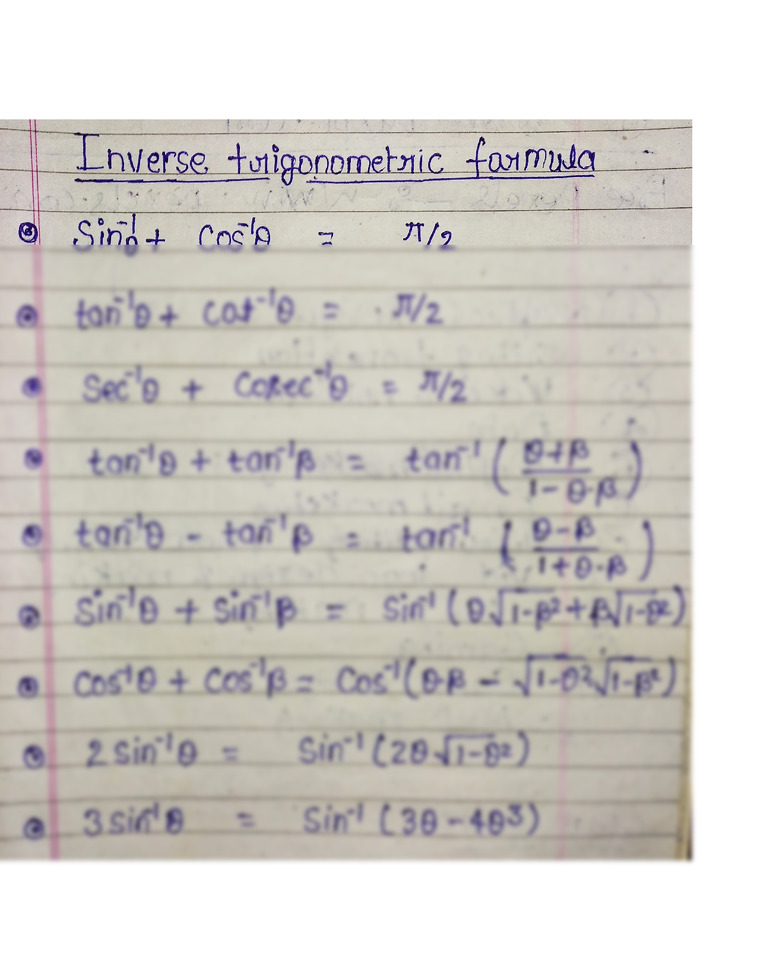 Inverse trigonometric formula
Sin⁻¹θ + Cos⁻¹θ = π/2
tan⁻¹θ + cot⁻¹θ = π/2
Sec⁻¹θ + Cosec⁻¹θ = π/2
tan⁻¹θ + tan⁻¹β = tan⁻¹ (θ+β / 1-θ·β)
tan⁻¹θ - tan⁻¹β = tan⁻¹ (θ-β / 1+θ·β)
Sin⁻¹θ + Sin⁻¹β = Sin⁻¹ (θ√1-β² + β√1-θ²)
Cos⁻¹θ + Cos⁻¹β = Cos⁻¹(θβ - √1-θ² √1-β²)
2 sin⁻¹θ = Sin⁻¹ (2θ√1-θ²)
3 sin⁻¹θ = Sin⁻¹ (3θ - 4θ³)